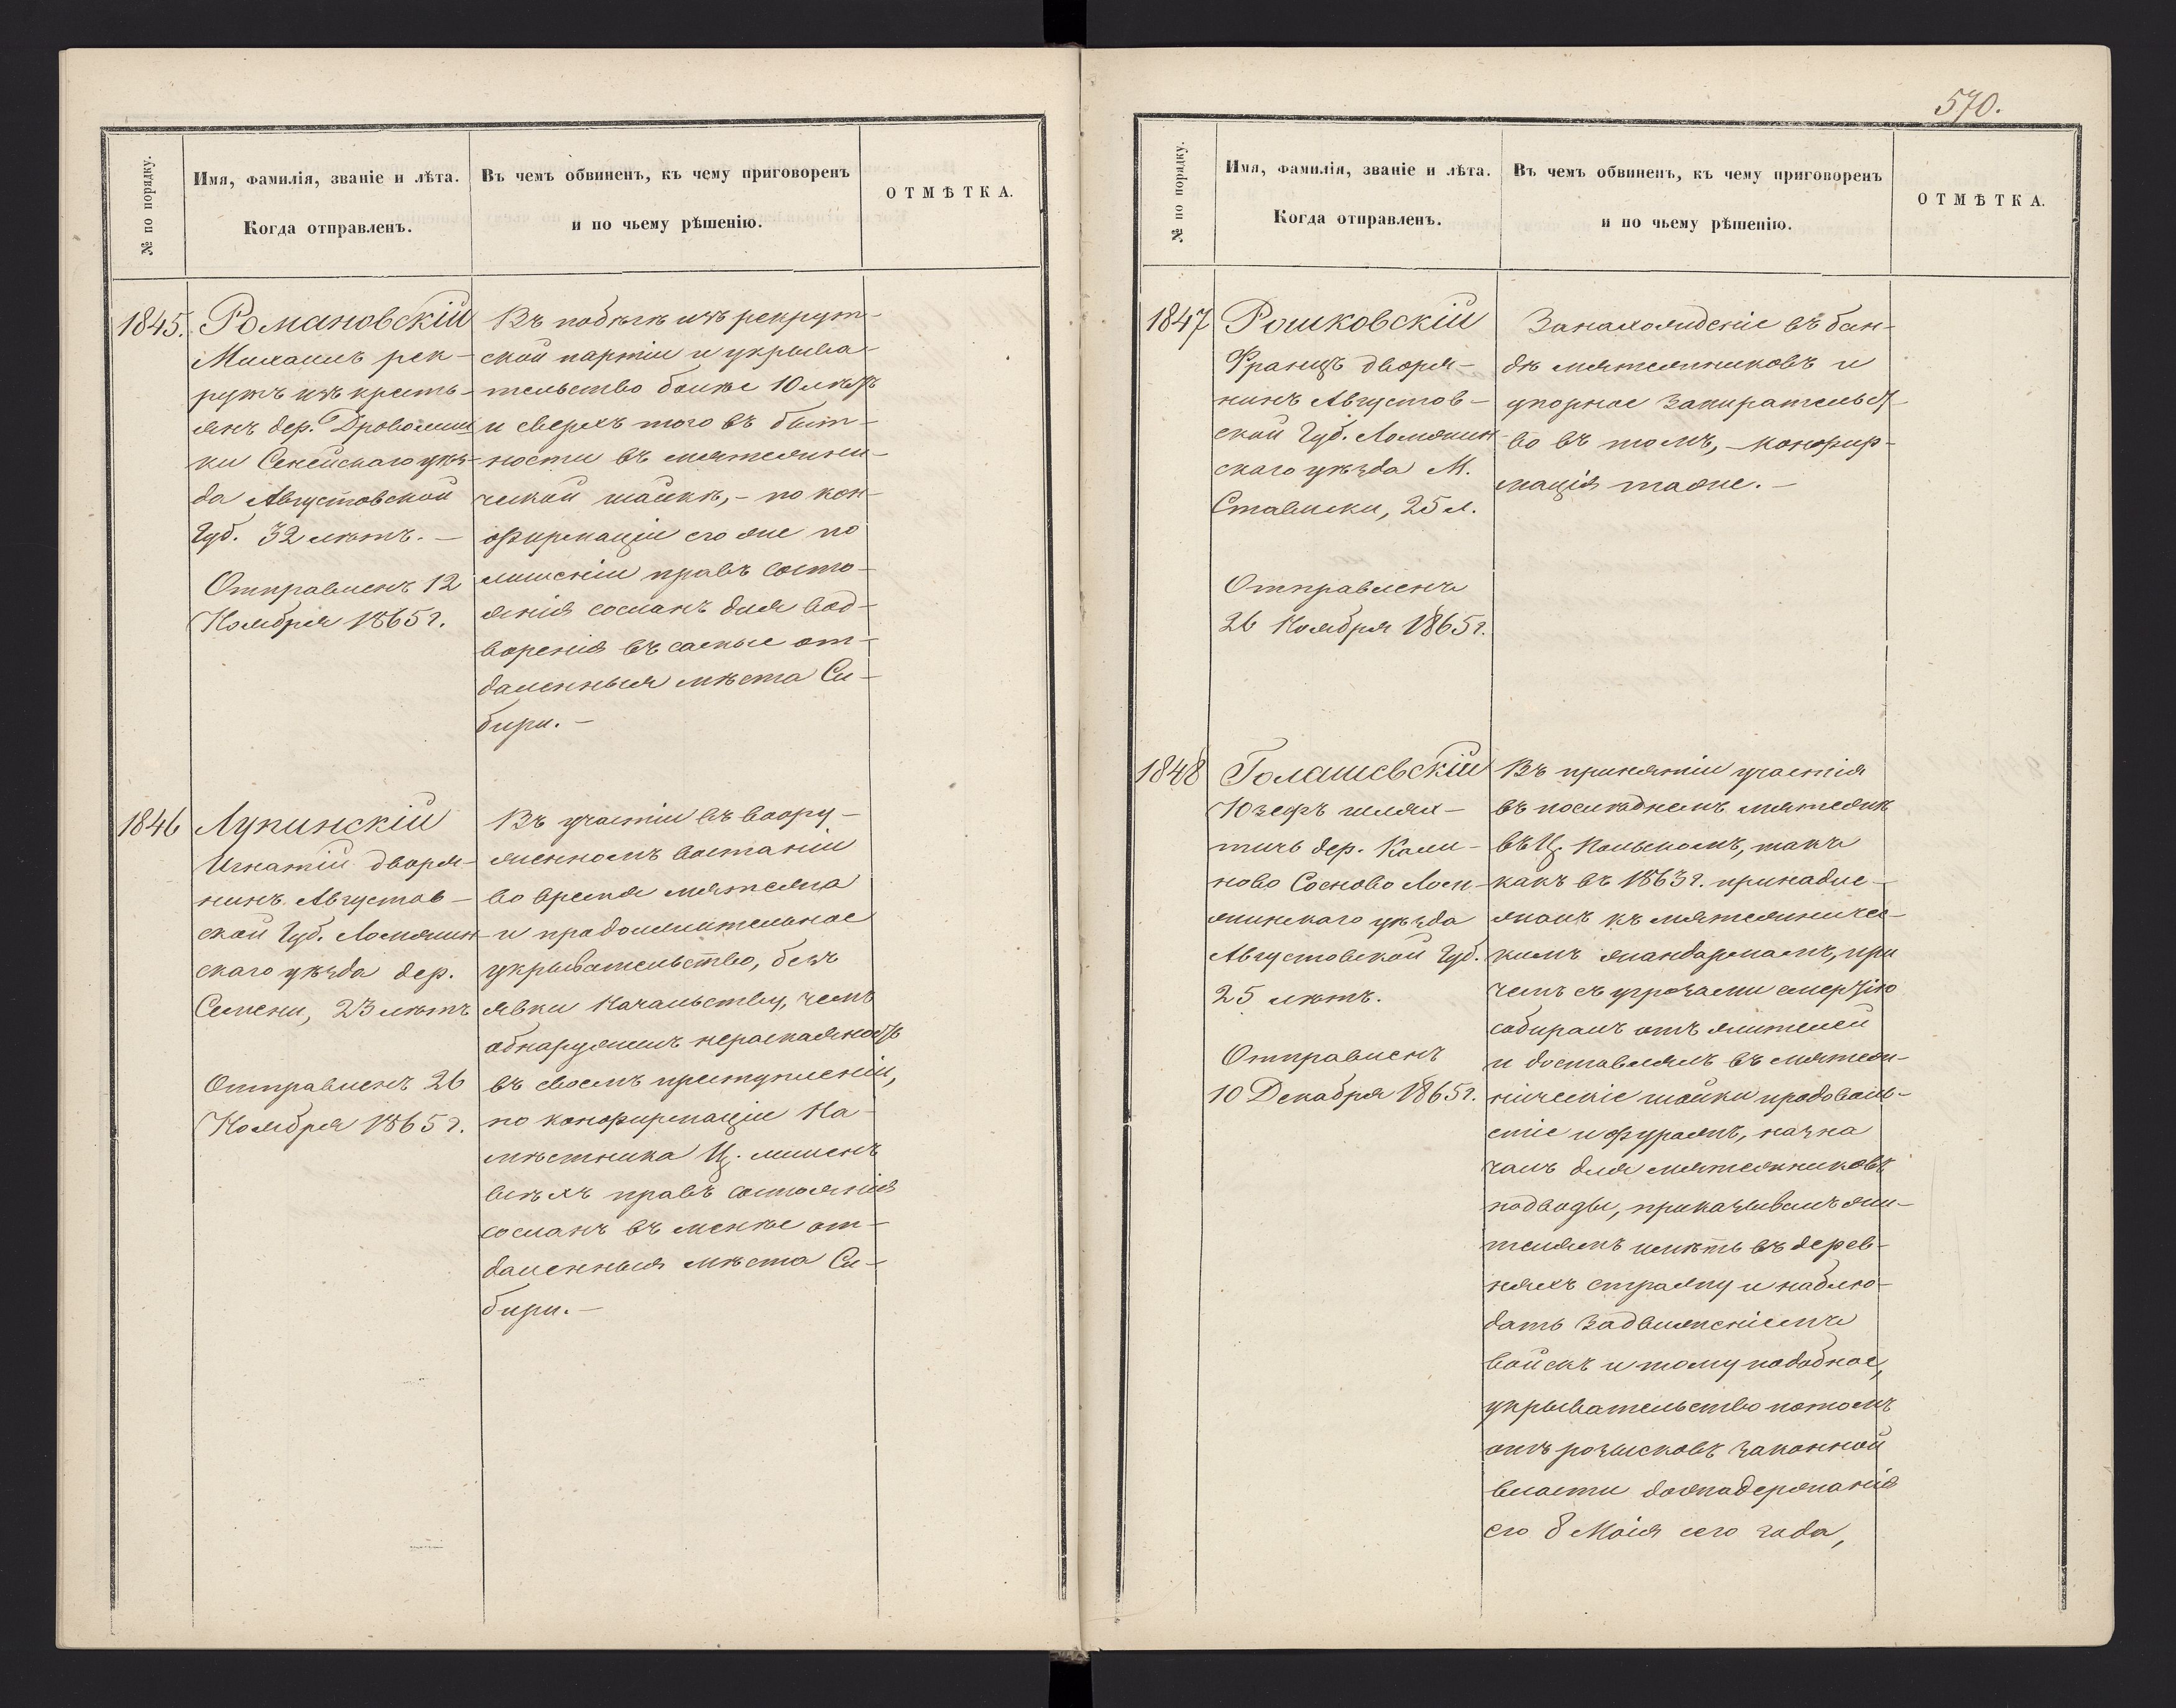 570.
№ по порядку.
Имя, фамилія, званіе и лѣта.
Когда отправленъ.
Въ чемъ обвиненъ, къ чему приговоренъ
и по чьему рѣшенію.
ОТМѢТКА.
1845.
Романовскій
Михаилъ рек-
рутъ изъ кресть-
янъ дер.
ки Сейнскаго уѣз-
да Августовской
Губ. 32 лѣтъ. —
Отправленъ 12
Ноября 1865 г.
Въ побѣгѣ изъ рекрут-
ской партіи и укрыва-
тельство болѣе 10 лѣтъ
и сверхъ того въ быт-
ности въ мятежни-
ческой шайкѣ, — по кон-
фирмаціи его же по
лишеніи правъ состо-
янія сосланъ для вод-
воренія въ самые от-
даленныя мѣста Си-
бири. —
1846
Лупинскій
Игнатій дворя-
нинъ Августов-
ской Губ. Ломжин-
скаго уѣзда дер.
23 лѣтъ
Отправленъ 26
Ноября 1865 г.
Въ участіи въ воору-
женномъ востаніи
во время мятежа
и продолжительное
укрывательство, безъ
явки Начальству, чемъ
обнаружилъ нераскаяность
въ своемъ преступленіи,
по конфирмаціи На-
мѣстника Ц. лишенъ
всѣхъ правъ состоянія
сосланъ въ менѣе от-
даленныя мѣста Си-
бири. —
№ по порядку.
Имя, фамилія, званіе и лѣта.
Когда отправленъ.
Въ чемъ обвиненъ, къ чему приговоренъ
и по чьему рѣшенію.
ОТМѢТКА.
1847
Рошковскій
Францъ дворя-
нинъ Августов-
ской Губ. Ломжин-
скаго уѣзда М.
Стависки, 25 л.
Отправленъ
26 Ноября 1865 г.
За нахожденіе въ бан-
дѣ мятежниковъ и
упорное запирательст-
во въ томъ, — конфир-
мація таже. —
1848
Голашевскій
Юзефъ шлях-
тичь дер. Кали-
ново Сосново Лом-
жинскаго уѣзда
Августовской Губ.
25 лѣтъ.
Отправленъ
10 Декабря 1865 г.
Въ принятіи участія
въ послѣднемъ мятежѣ
въ Ц. Польскомъ, такъ
какъ въ 1863 г. принадле-
жалъ къ мятежничес-
кимъ жандармамъ, при
чемъ съ угрозами смертію
собиралъ отъ жителей
и доставлялъ въ мятеж-
ническіе шайки продоволь-
ствіе и фуражъ, назна
чалъ для мятежниковъ
подводы, приказывалъ жи-
телямъ имѣть въ дерев-
няхъ стражу и наблю-
дать за движеніемъ
войскъ и тому подобное,
укрывательство потомъ
отъ розысковъ законной
власти до задержанія
его 8 Маія сего года,